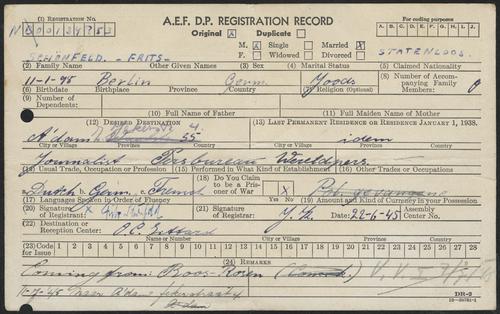 A.E.F. D.P. REGISTRATION RECORD
(1) REGISTRATION NO.
Original X Duplicate
For coding purposes
A. B. C. D. E. F. G. H. I. J.
M. X Single Married X
F. Widowed Divorced
SCHÖNFELD - FRITS - STATENLOOS.
(2) Family Name Other Given Names (3) Sex (4) Marital Status (5) Claimed Nationality
11-1-95 Berlin Germ. Joods
(6) Birthdate Birthplace Province Country (7) Religion (Optional) (8) Number of Accompanying Family Members: 0
(9) Number of Dependents: (10) Full Name of Father (11) Full Maiden Name of Mother
(12) DESIRED DESTINATION (13) LAST PERMANENT RESIDENCE OR RESIDENCE JANUARY 1, 1938.
A'dam 55 idem
City or Village Province Country City or Village Province Country
Journalist Persbureau
(14) Usual Trade, Occupation or Profession (15) Performed in What Kind of Establishment (16) Other Trades or Occupations
Dutch Germ. French (18) Do You Claim to be a Prisoner of War X
(17) Languages Spoken in Order of Fluency Yes No (19) Amount and Kind of Currency in your Possession
(20) Signature of Registrant: (21) Signature of Registrar: Date: 22-6-45 Assembly Center No.
(22) Destination or Reception Center: O.C. Sittard
Name or Number City or Village Province Country
(23) Code for Issue 1 2 3 4 5 6 7 8 9 10 11 12 13 14 15 16 17 18 19 20 21 22 23 24 25 26 27 28
(24) REMARKS
Coming from:
11-7-45 naar A'dam
DP-2